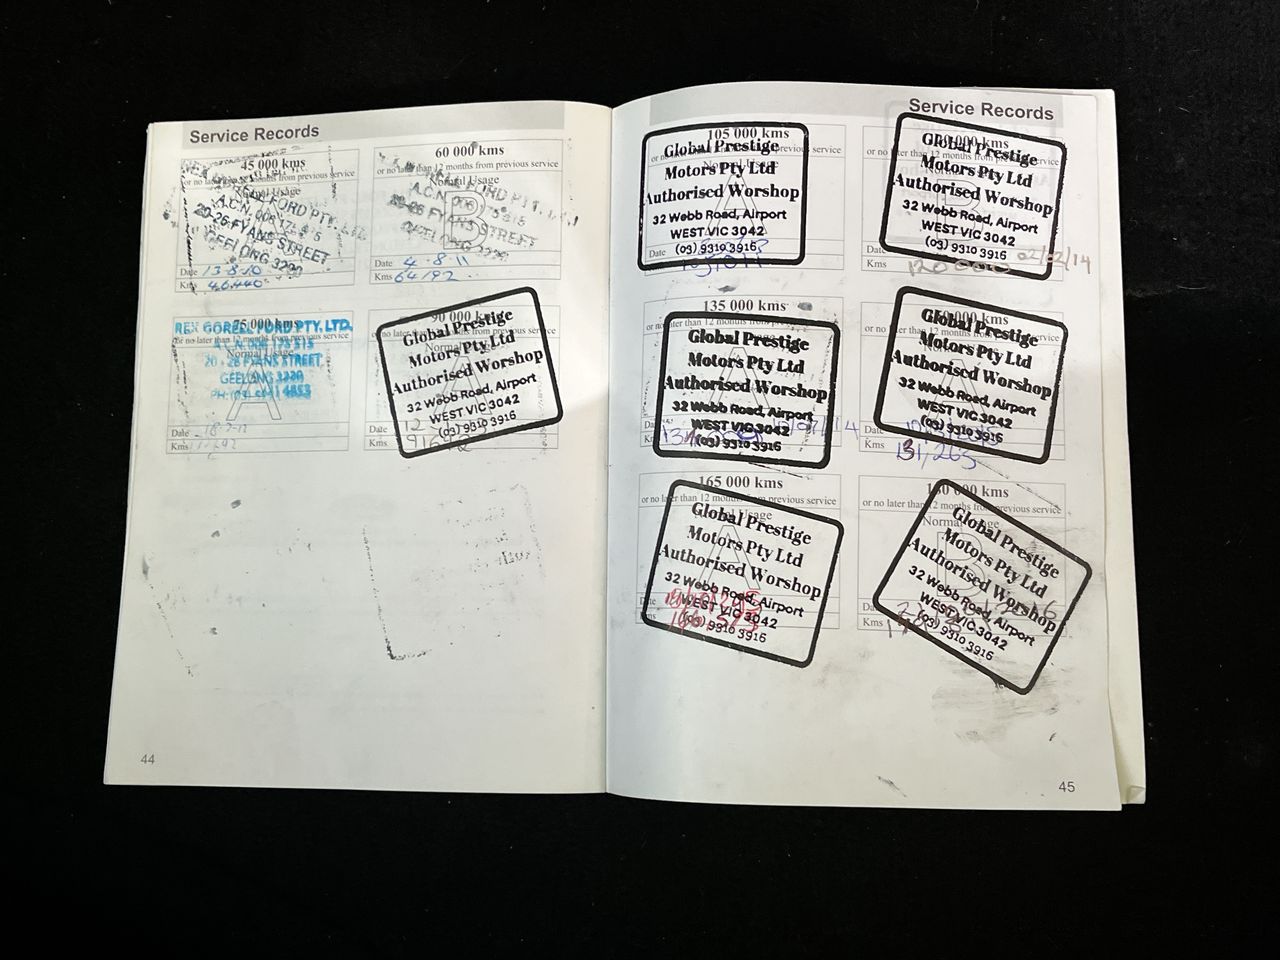 Service Records
45 000 kms
or no later than 12 months from previous service
Normal Usage
REX GORELL FORD PTY. LTD.
A.C.N. 006 175 515
20-26 FYANS STREET
GEELONG 3220
Date 13-8-10
Kms 46440
60 000 kms
or no later than 12 months from previous service
Normal Usage
B
FORD PTY. LTD.
A.C.N. 006 175 515
20-26 FYANS STREET
GEELONG 3220
Date 4-8-11
Kms 64192
75 000 kms
or no later than 12 months from previous service
Normal Usage
A
REX GORELL FORD PTY. LTD.
A.C.N. 006 175 515
20-26 FYANS STREET
GEELONG 3220
Date
Kms
90 000 kms
or no later than 12 months from previous service
Normal Usage
Global Prestige
Motors Pty Ltd
Authorised Worshop
32 Webb Road, Airport
WEST VIC 3042
(03) 9310 3916
Date
Kms
44
Service Records
105 000 kms
or no later than 12 months from previous service
Normal Usage
A
Global Prestige
Motors Pty Ltd
Authorised Worshop
32 Webb Road, Airport
WEST VIC 3042
(03) 9310 3916
Date
Global Prestige
Motors Pty Ltd
Authorised Worshop
32 Webb Road, Airport
WEST VIC 3042
(03) 9310 3916
02/02/14
Kms 120000
135 000 kms
or no later than 12 months from previous service
Global Prestige
Motors Pty Ltd
Authorised Worshop
32 Webb Road, Airport
WEST VIC 3042
(03) 9310 3916
Kms
Global Prestige
Motors Pty Ltd
Authorised Worshop
32 Webb Road, Airport
WEST VIC 3042
(03) 9310 3916
Date
Kms
165 000 kms
or no later than 12 months from previous service
Normal Usage
A
Global Prestige
Motors Pty Ltd
Authorised Worshop
32 Webb Road, Airport
WEST VIC 3042
(03) 9310 3916
Date
180 000 kms
or no later than 12 months from previous service
Normal Usage
B
Global Prestige
Motors Pty Ltd
Authorised Worshop
32 Webb Road, Airport
WEST VIC 3042
(03) 9310 3916
Date
Kms
45